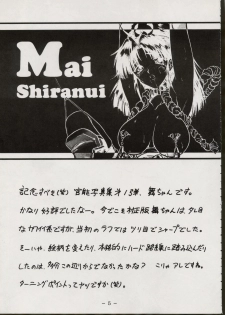 Mai
Shiranui
記念すべき(笑)官能写真集㐧13弾、舞ちゃんです。
かなり好評でしたなー。今でこそ村正版舞ちゃんは、タレ目
なカワイイ系ですが、当初のラフではツリ目でシャープでした。
モーハや、絵柄を変えたり、本格的にハード路線に踏み込んだり
したのは、多分この辺りからでなかったかな?
ターニングポイントってヤツですか(笑)。
- 5 -